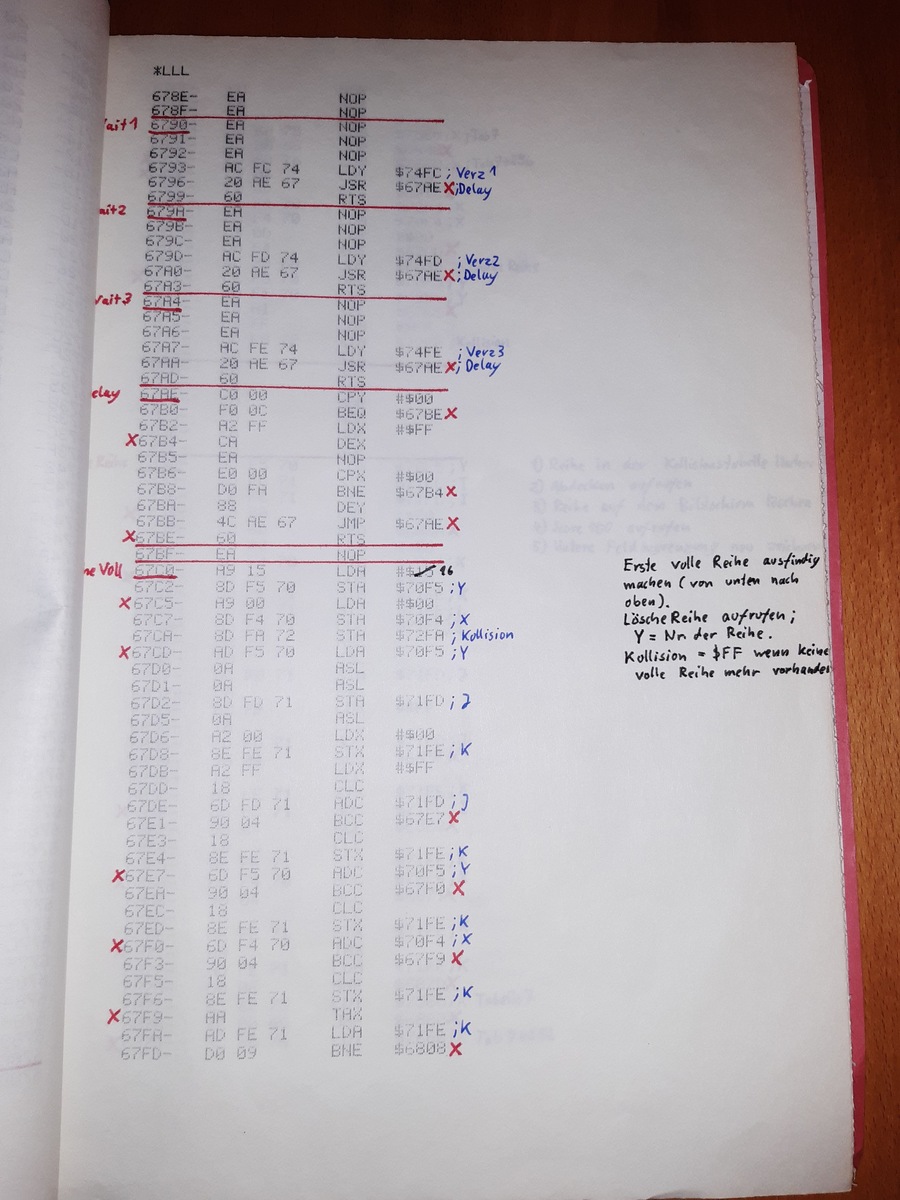 *LLL
678E- EA NOP
678F- EA NOP
ait1 6790- EA NOP
6791- EA NOP
6792- EA NOP
6793- AC FC 74 LDY $74FC ; Verz 1
6796- 20 AE 67 JSR $67AE X ;Delay
6799- 60 RTS
ait2 679A- EA NOP
679B- EA NOP
679C- EA NOP
679D- AC FD 74 LDY $74FD ; Verz2
67A0- 20 AE 67 JSR $67AE X ; Delay
67A3- 60 RTS
ait3 67A4- EA NOP
67A5- EA NOP
67A6- EA NOP
67A7- AC FE 74 LDY $74FE ; Verz3
67AA- 20 AE 67 JSR $67AE X ; Delay
67AD- 60 RTS
elay 67AE- C0 00 CPY #$00
67B0- F0 0C BEQ $67BE X
67B2- A2 FF LDX #$FF
X 67B4- CA DEX
67B5- EA NOP
67B6- E0 00 CPX #$00
67B8- D0 FA BNE $67B4 X
67BA- 88 DEY
67BB- 4C AE 67 JMP $67AE X
X 67BE- 60 RTS
67BF- EA NOP
he Voll 67C0- A9 15 LDA #$15 16
67C2- 8D F5 70 STA $70F5 ; Y
X 67C5- A9 00 LDA #$00
67C7- 8D F4 70 STA $70F4 ; X
67CA- 8D FA 72 STA $72FA ; Kollision
X 67CD- AD F5 70 LDA $70F5 ; Y
67D0- 0A ASL
67D1- 0A ASL
67D2- 8D FD 71 STA $71FD ; J
67D5- 0A ASL
67D6- A2 00 LDX #$00
67D8- 8E FE 71 STX $71FE ; K
67DB- A2 FF LDX #$FF
67DD- 18 CLC
67DE- 6D FD 71 ADC $71FD ; J
67E1- 90 04 BCC $67E7 X
67E3- 18 CLC
67E4- 8E FE 71 STX $71FE ; K
X 67E7- 6D F5 70 ADC $70F5 ; Y
67EA- 90 04 BCC $67F0 X
67EC- 18 CLC
67ED- 8E FE 71 STX $71FE ; K
X 67F0- 6D F4 70 ADC $70F4 ; X
67F3- 90 04 BCC $67F9 X
67F5- 18 CLC
67F6- 8E FE 71 STX $71FE ; K
X 67F9- AA TAX
67FA- AD FE 71 LDA $71FE ; K
67FD- D0 09 BNE $6808 X
Erste volle Reihe ausfindig
machen (von unten nach
oben).
Lösche Reihe aufrufen ;
Y = Nr. der Reihe.
Kollision = $FF wenn keine
volle Reihe mehr vorhanden